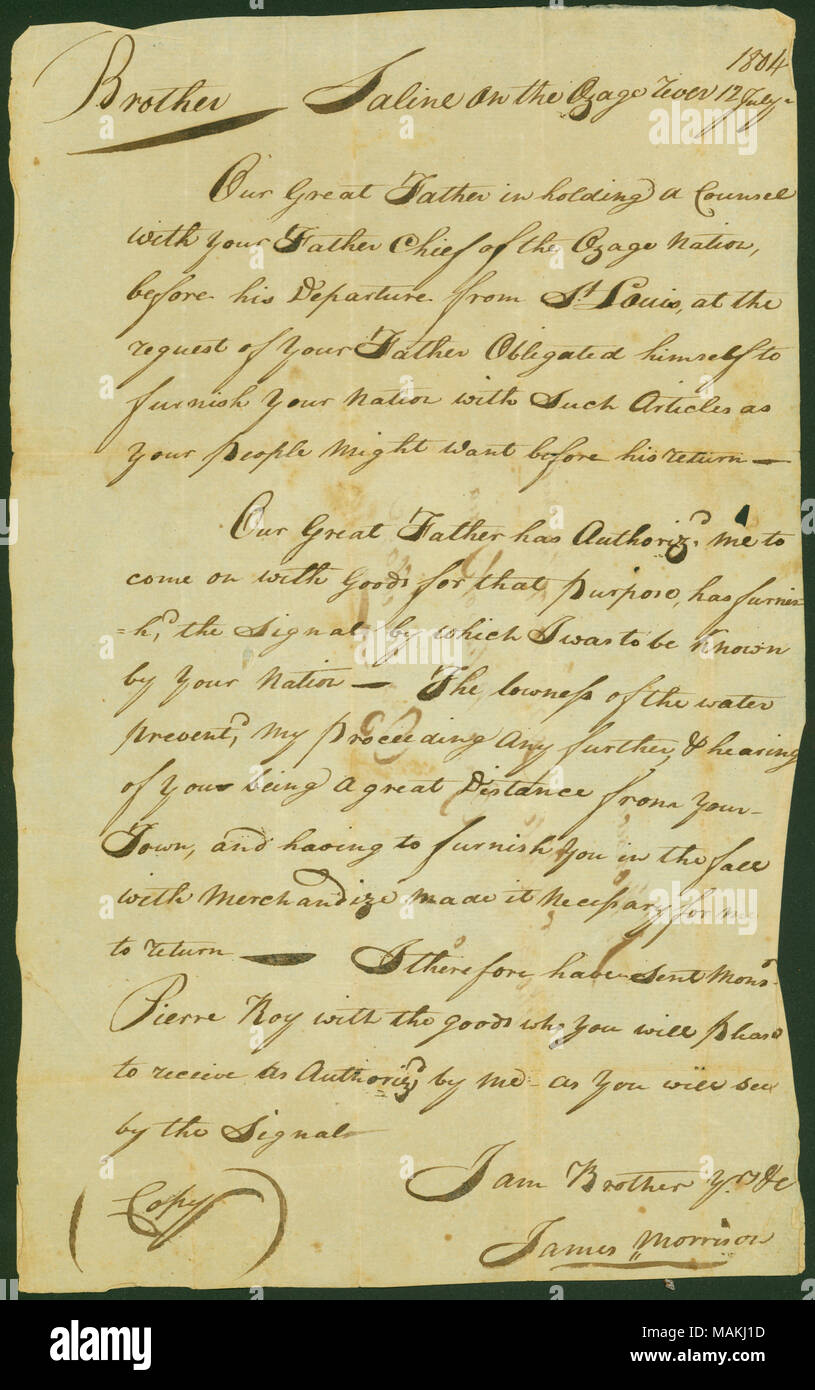 1804
Brother — Saline on the Ozage rever 12 July
Our Great Father in holding a Counsel
with your Father Chief of the Ozage Nation,
before his Departure from St Louis, at the
request of your Father Obligated himself to
furnish your Nation with Such Articles as
your people Might want before his return —
Our Great Father has Authorizd me to
come on with Goods for that purpose, has furnis-
=hd the Signal by which I was to be known
by your Nation — The lowness of the water
prevented my Proceeding any further, & hearing
of you being a great Distance from your
Town, and having to furnish you in the fall
with Merchandize made it Necessary for me
to return — I therefore have sent Monsr
Pierre Roy with the goods who you will Please
to receive as Authorizd by me as you will see
by the Signal
I am Brother yrs &c
(Copy)
James Morrison
alamy
a
alamy
Image ID: MAKJ1D
www.alamy.com